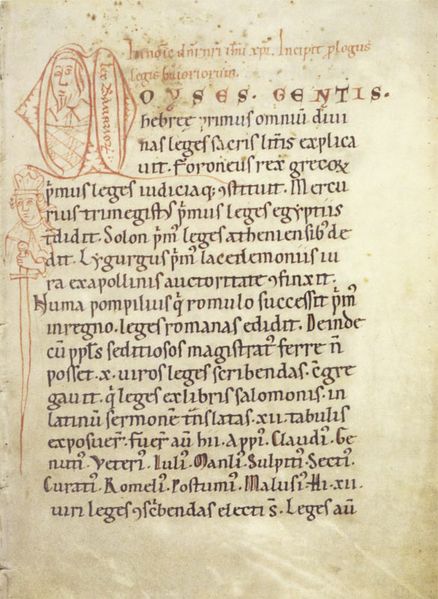 In nomine dñi nri ihu xpi. Incipit plogus
legis baioriorum.
OYSES. GENTIS.
hebreę primus omniū divi
nas leges sacris litris explica
uit. Foroneus rex grecoꝝ
pmus leges iudiciaq; ꝯstituit. Mercu
rius trimegistꝰ pmus leges egyptiis
tdidit. Solon pmꝰ leges atheniensibꝰ de
dit. Lygurgus pmꝰ lacedemoniis iu
ra ex apollinis auctoritate ꝯfinxit.
Numa pompilius q romulo successit pmꝰ
in regno. leges romanas edidit. Deinde
cū ppls seditiosos magistratꝰ ferre ñ
posset. x. uiros leges scribendas. ꝯgre
gauit. q leges ex libris salomonis. in
latinū sermonē tnslatas. xii. tabulis
exposuer. fuer aū hii. Appi. Claudi. Ge
nuti. Veteri. Iuli. Manli. Sulpiti. Secti.
Curati. Romeli. Postumi. Malusi. Hi. xii.
uiri leges ꝯscbendas electi s. Leges aū